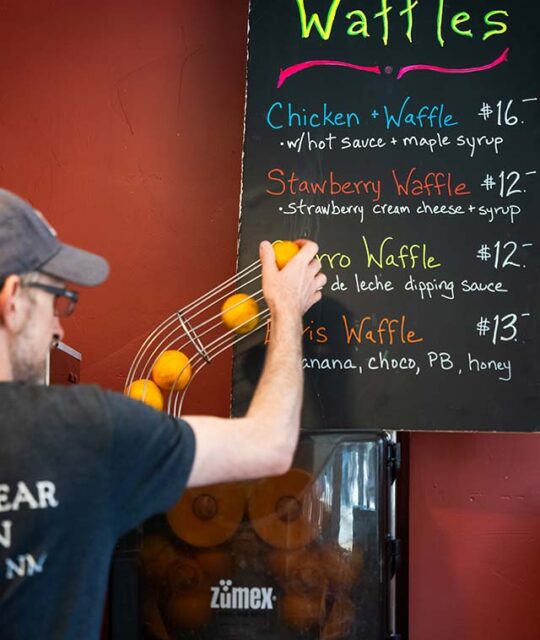 Waffles
Chicken + Waffle $16.-
• w/hot sauce + maple syrup
Stawberry Waffle $12.-
• strawberry cream cheese + syrup
rro Waffle $12.-
de leche dipping sauce
is Waffle $13.-
anana, choco, PB, honey
EAR
N
NM
zümex